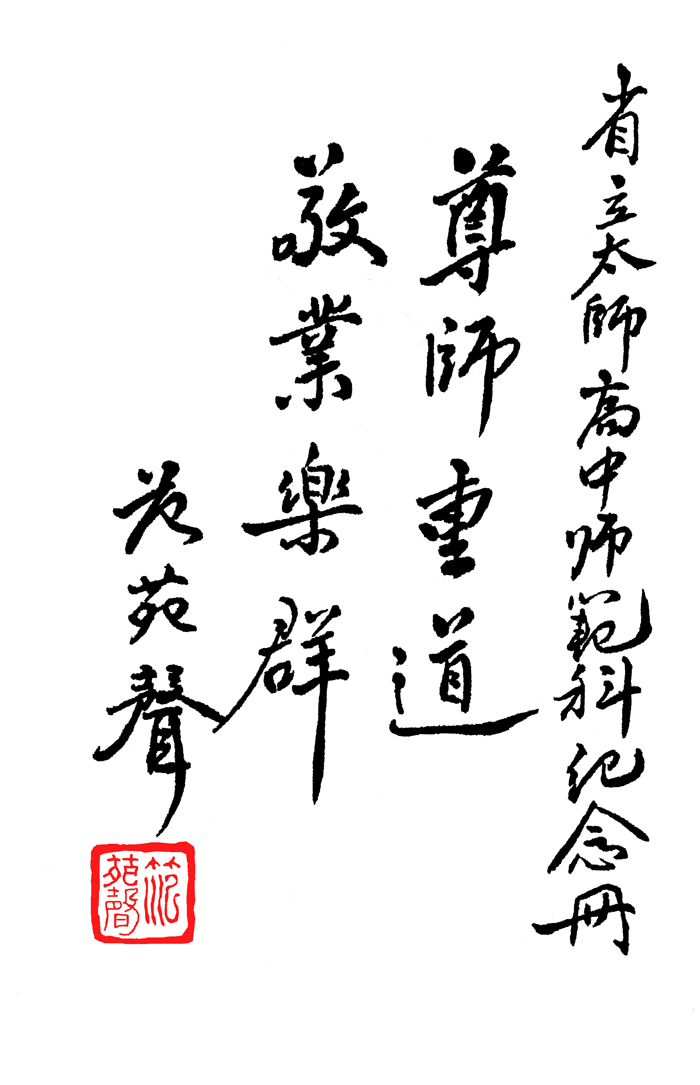 省立太師高中师範科纪念冊
尊師重道
敬業樂群
范苑聲
笵苑聲